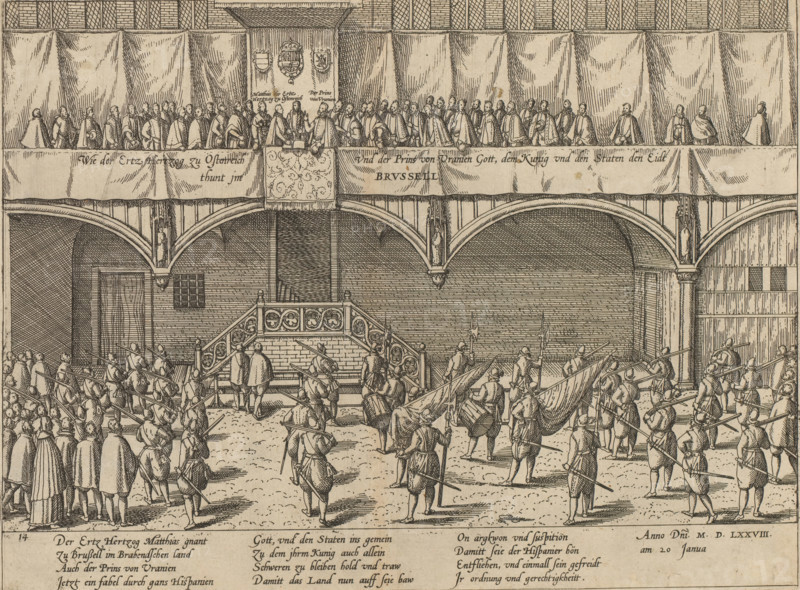 Matthias der Ertz
Hertzog zu Osterreich
Der Prins
von Uranien
Wie der Ertz Hertzog zu Ostenreich
thunt jm
Vnd der Prins von Vranien Gott, dem Kunig vnd den Staten den Eidt
BRVSSELL
14
Der Ertz Hertzog Matthias gnant
Zu Brußell im Brabendschen land
Auch der Prins von Vranien
Jetzt ein fabel durch gans Hispanien
Gott, vnd den Stuten ins gemein
Zu dem jhrm Kunig auch allein
Schweren zu bleiben hold vnd traw
Damitt das Land nun auff seie baw
On argkwon vnd suspition
Damitt seie der Hispanier hön
Entfliehen, vnd einmall sein gefreidt
Jr ordnung vnd gerechtigkeitt.
Anno Dñi M. D. LXXVIII.
am 20 Janua